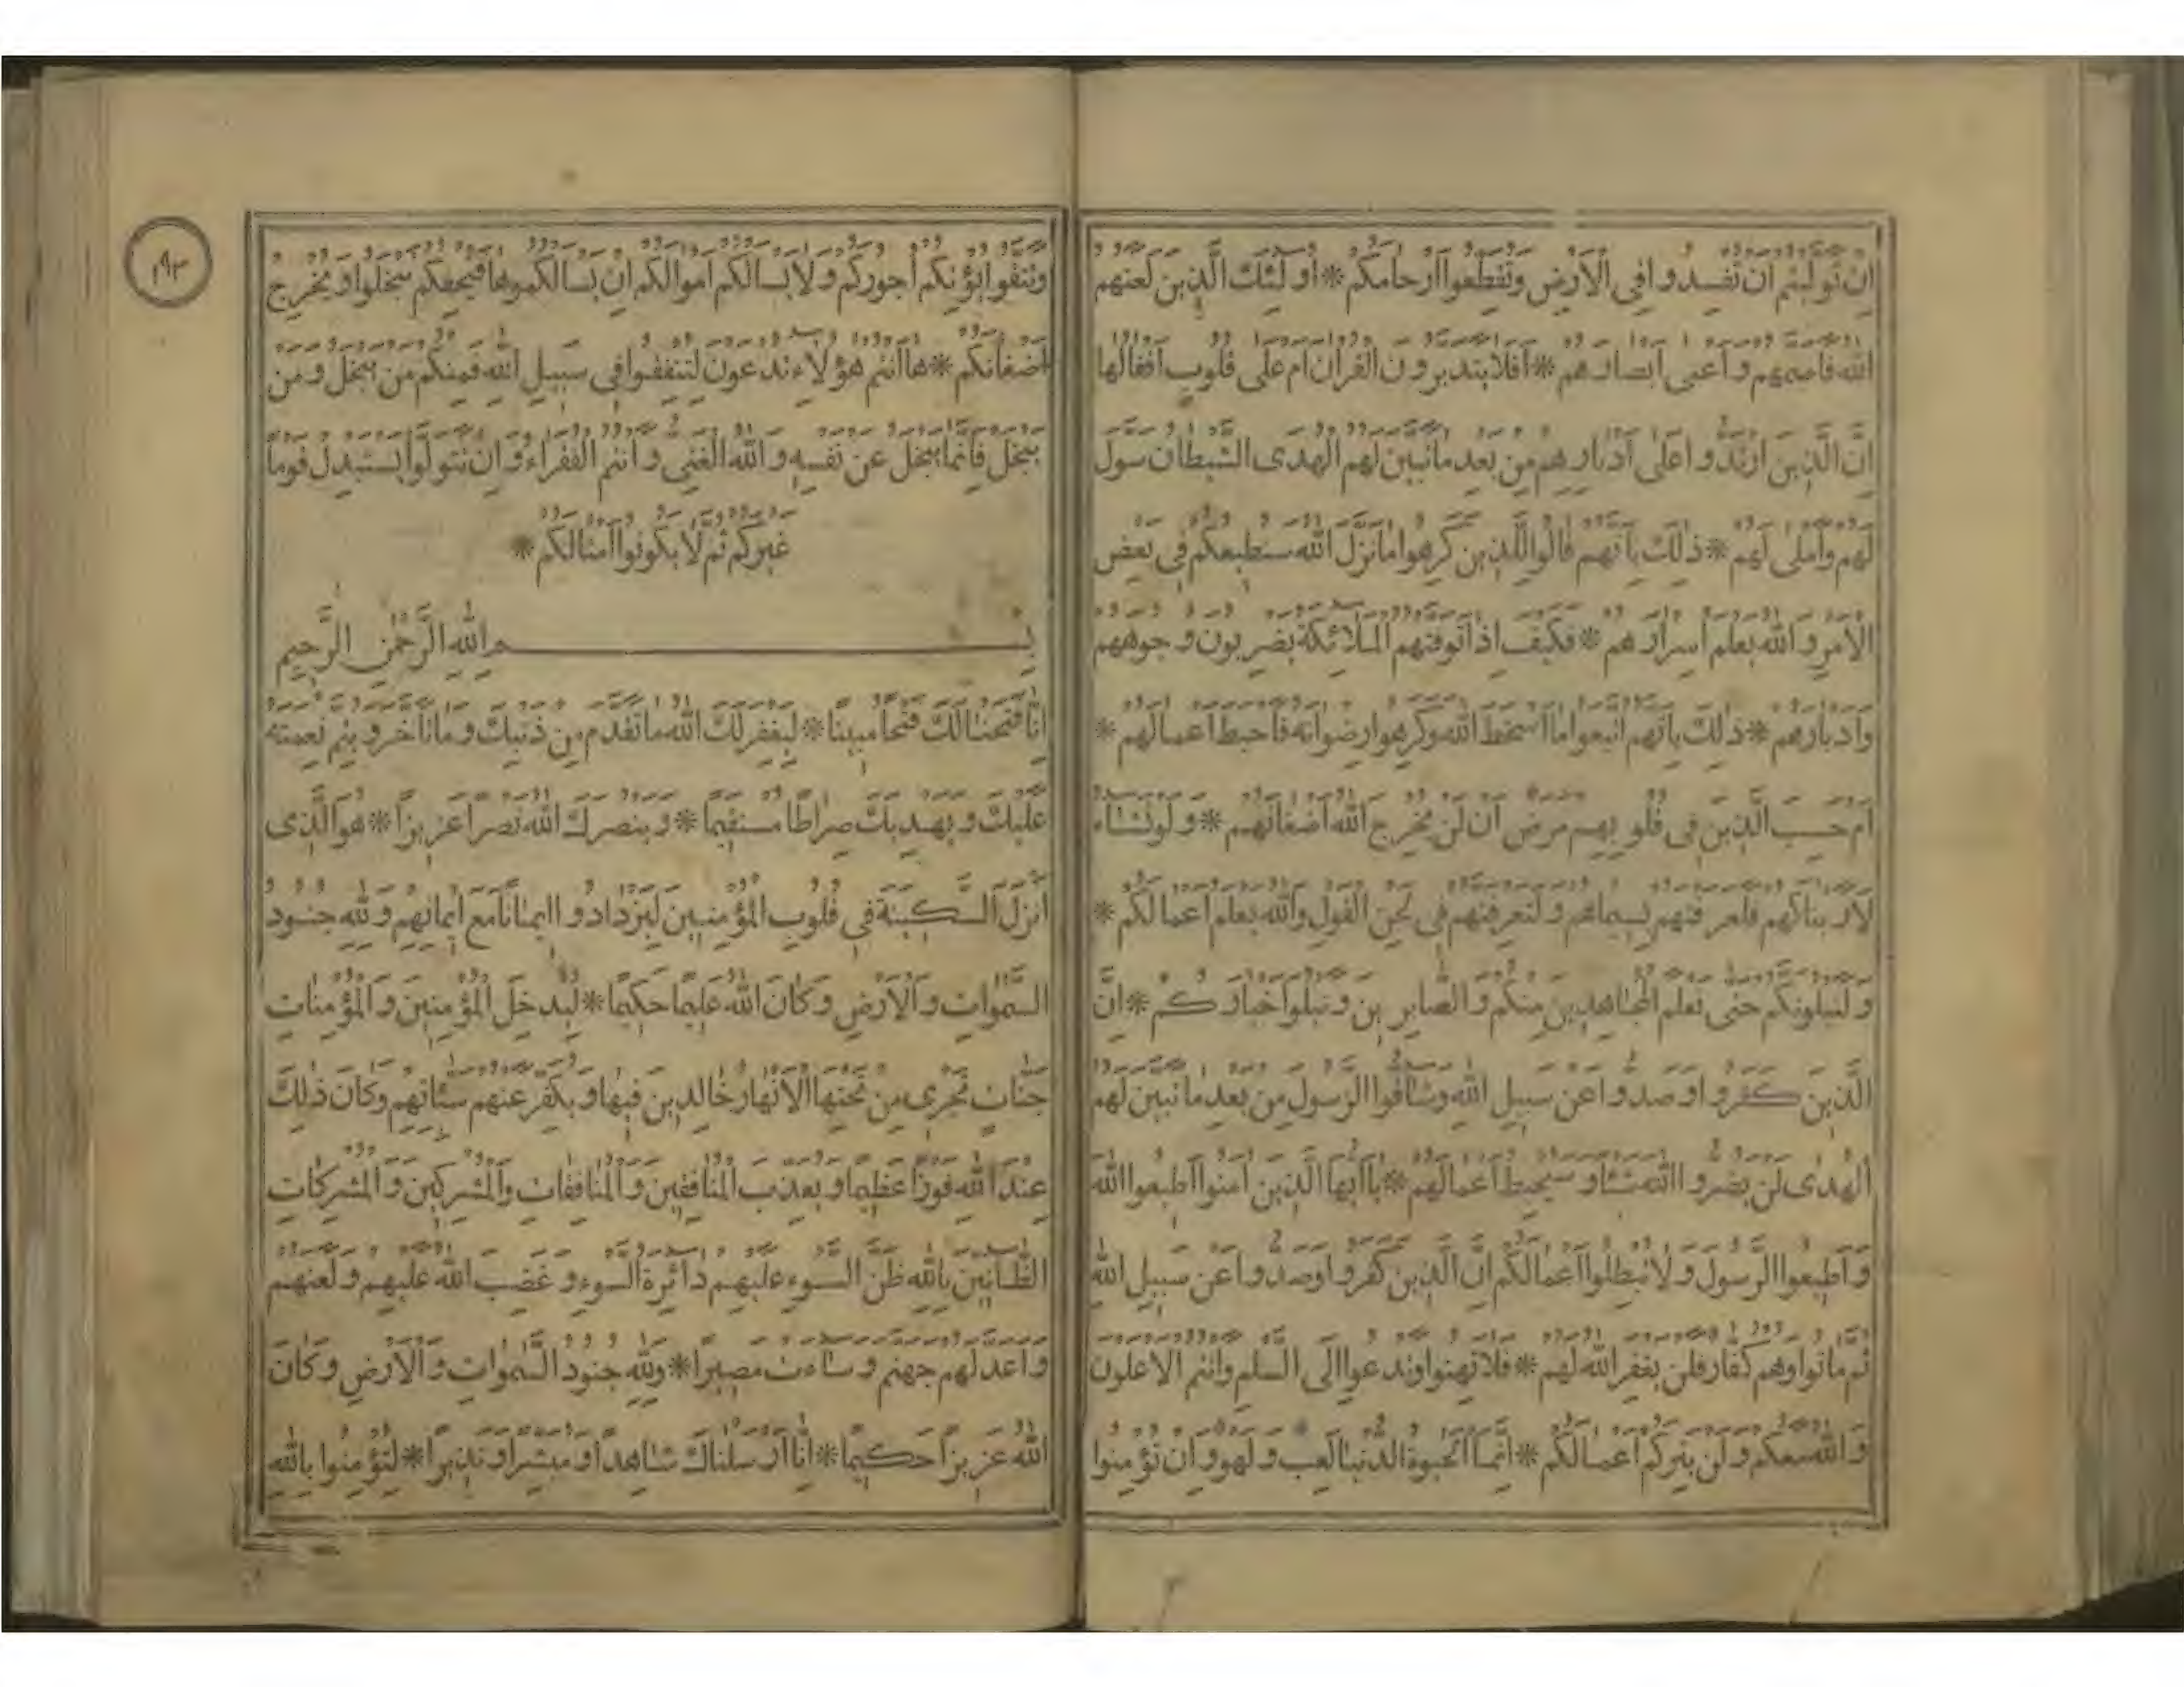 ان توليتم ان تفسدوا في الارض وتقطعوا ارحامكم * اولئك الذين لعنهم
الله فاصمهم واعمى ابصارهم * افلا يتدبرون القران ام على قلوب اقفالها
ان الذين ارتدوا على ادبارهم من بعد ما تبين لهم الهدى الشيطان سول
لهم واملى لهم * ذلك بانهم قالوا للذين كرهوا ما نزل الله سنطيعكم في بعض
الامر والله يعلم اسرارهم * فكيف اذا توفتهم الملائكة يضربون وجوههم
وادبارهم * ذلك بانهم اتبعوا ما اسخط الله وكرهوا رضوانه فاحبط اعمالهم *
ام حسب الذين في قلوبهم مرض ان لن يخرج الله اضغانهم * ولو نشاء
لاريناكهم فلعرفتهم بسيماهم ولتعرفنهم في لحن القول والله يعلم اعمالكم *
ولنبلونكم حتى نعلم المجاهدين منكم والصابرين ونبلوا اخباركم * ان
الذين كفروا وصدوا عن سبيل الله وشاقوا الرسول من بعد ما تبين لهم
الهدى لن يضروا الله شيئا وسيحبط اعمالهم * يا ايها الذين امنوا اطيعوا الله
واطيعوا الرسول ولا تبطلوا اعمالكم ان الذين كفروا وصدوا عن سبيل الله
ثم ماتوا وهم كفار فلن يغفر الله لهم * فلا تهنوا وتدعوا الى السلم وانتم الاعلون
والله معكم ولن يتركم اعمالكم * انما الحيوة الدنيا لعب ولهو وان تؤمنوا
١٩٣
وتتقوا يؤتكم اجوركم ولا يسالكم اموالكم ان يسالكموها فيحفكم تبخلوا ويخرج
اضغانكم * ها انتم هؤلاء تدعون لتنفقوا في سبيل الله فمنكم من يبخل ومن
يبخل فانما يبخل عن نفسه والله الغني وانتم الفقراء وان تتولوا يستبدل قوما
غيركم ثم لا يكونوا امثالكم *
بسم الله الرحمن الرحيم
انا فتحنا لك فتحا مبينا * ليغفر لك الله ما تقدم من ذنبك وما تاخر ويتم نعمته
عليك ويهديك صراطا مستقيما * وينصرك الله نصرا عزيزا * هو الذي
انزل السكينة في قلوب المؤمنين ليزدادوا ايمانا مع ايمانهم ولله جنود
السموات والارض وكان الله عليما حكيما * ليدخل المؤمنين والمؤمنات
جنات تجري من تحتها الانهار خالدين فيها ويكفر عنهم سيئاتهم وكان ذلك
عند الله فوزا عظيما ويعذب المنافقين والمنافقات والمشركين والمشركات
الظانين بالله ظن السوء عليهم دائرة السوء وغضب الله عليهم ولعنهم
واعد لهم جهنم وساءت مصيرا * ولله جنود السموات والارض وكان
الله عزيزا حكيما * انا ارسلناك شاهدا ومبشرا ونذيرا * لتؤمنوا بالله